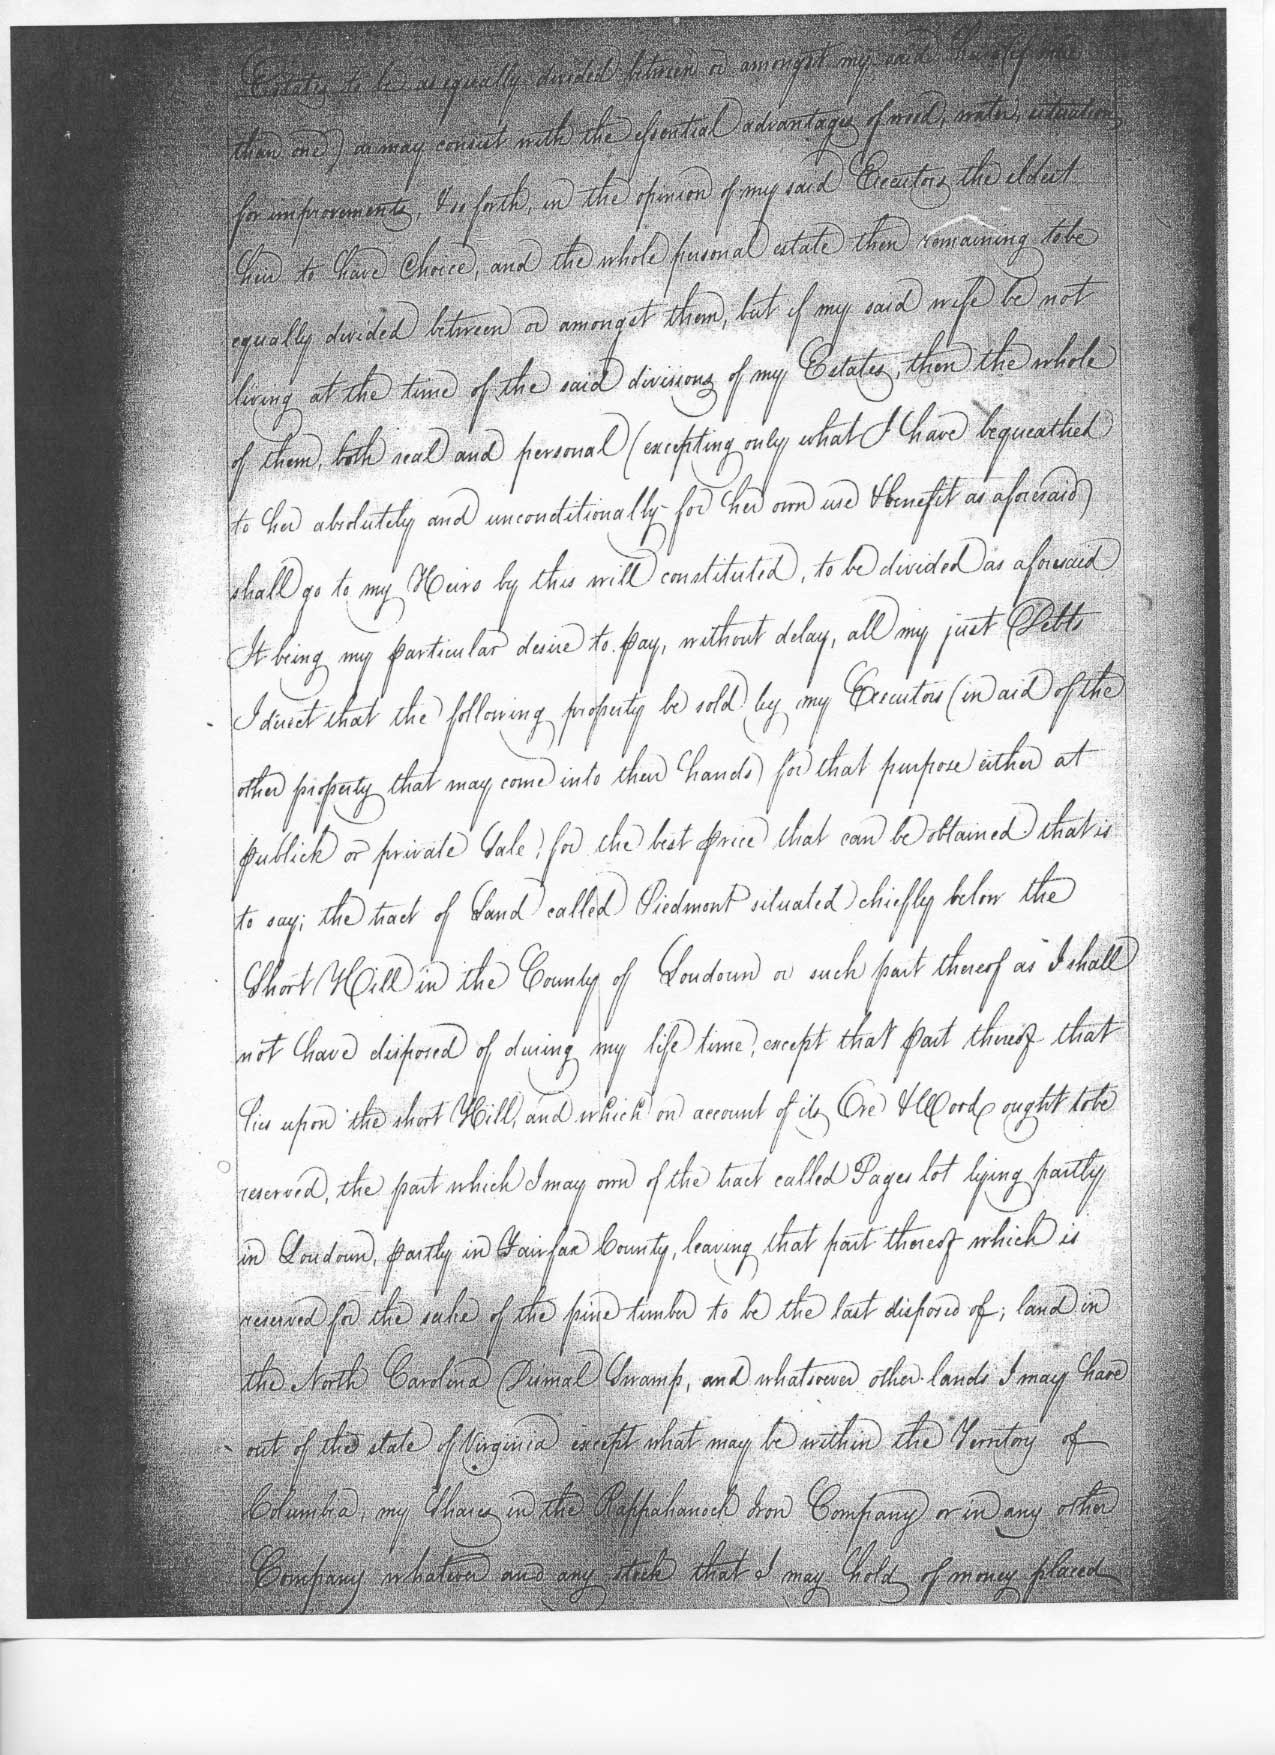 Estates to be as equally divided between or amongst my said heirs (if more
than one) as may consist with the essential advantages of wood, water, situation
for improvements, & so forth, in the opinion of my said Executors the eldest
heir to have Choice, and the whole personal estate then remaining to be
equally divided between or amongst them, but if my said wife be not
living at the time of the said divisions of my Estates, then the whole
of them, both real and personal (excepting only what I have bequeathed
to her absolutely and unconditionally for her own use & benefit as aforesaid)
shall go to my Heirs by this will constituted, to be divided as aforesaid
It being my particular desire to pay, without delay, all my just Debts
I direct that the following property be sold by my Executors (in aid of the
other property that may come into their hands) for that purpose either at
publick or private Sale, for the best price that can be obtained that is
to say; the tract of Land called Piedmont situated chiefly below the
Short Hill in the County of Loudoun or such part thereof as I shall
not have disposed of during my life time, except that part thereof that
lies upon the short Hill, and which on account of its Ore & Wood ought to be
reserved, the part which I may own of the tract called Pages lot lying partly
in Loudoun, partly in Fairfax County, leaving that part thereof which is
reserved for the sake of the pine timber to be the last disposed of; land in
the North Carolina Dismal Swamp, and whatsoever other lands I may have
out of the state of Virginia except what may be within the Territory of
Columbia, my Shares in the Rappahanock Iron Company or in any other
Company whatever and any stock that I may hold of money placed